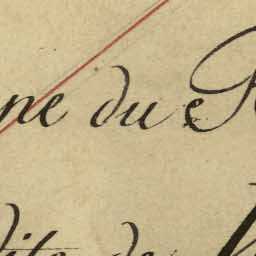 ne du R
dite de